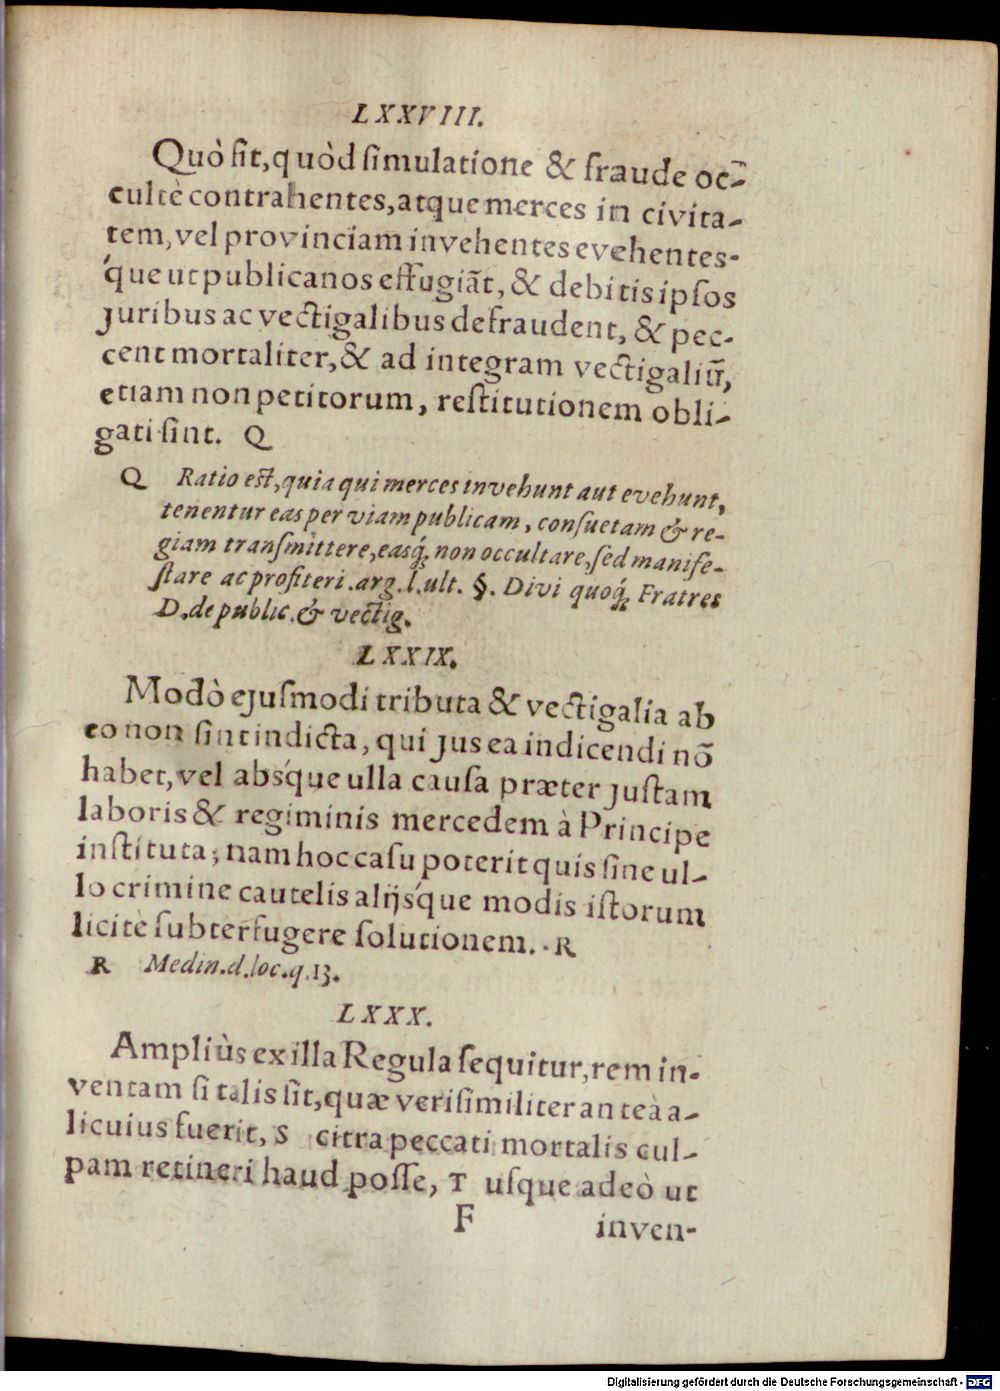 LXXVIII.
Quò ſit, quòd ſimulatione & fraude oc-
cultè contrahentes, atque merces in civita-
tem, vel provinciam invehentes evehentes-
que ut publicanos effugiãt, & debitis ipſos
juribus ac vectigalibus defraudent, & pec-
cent mortaliter, & ad integram vectigaliũ,
etiam non petitorum, reſtitutionem obli-
gati ſint. Q
Q Ratio eſt, quia qui merces invehunt aut evehunt,
tenentur eas per viam publicam, conſuetam & re-
giam tranſmittere, easq́; non occultare, ſed manife-
ſtare ac profiteri. arg. l. ult. §. Divi quoq́; Fratres
D. de public. & vectig.
LXXIX.
Modò ejuſmodi tributa & vectigalia ab
eo non ſint indicta, qui jus ea indicendi nõ
habet, vel absq́ue ulla cauſa præter juſtam
laboris & regiminis mercedem à Principe
inſtituta; nam hoc caſu poterit quis ſine ul-
lo crimine cautelis alijsq́ue modis iſtorum
licitè ſubterfugere ſolutionem. R
R Medin. d. loc. q. 13.
LXXX.
Ampliùs ex illa Regula ſequitur, rem in-
ventam ſi talis ſit, quæ veriſimiliter anteà a-
licuius fuerit, S citra peccati mortalis cul-
pam retineri haud poſſe, T uſque adeò ut
F inven-
Digitalisierung gefördert durch die Deutsche Forschungsgemeinschaft - DFG